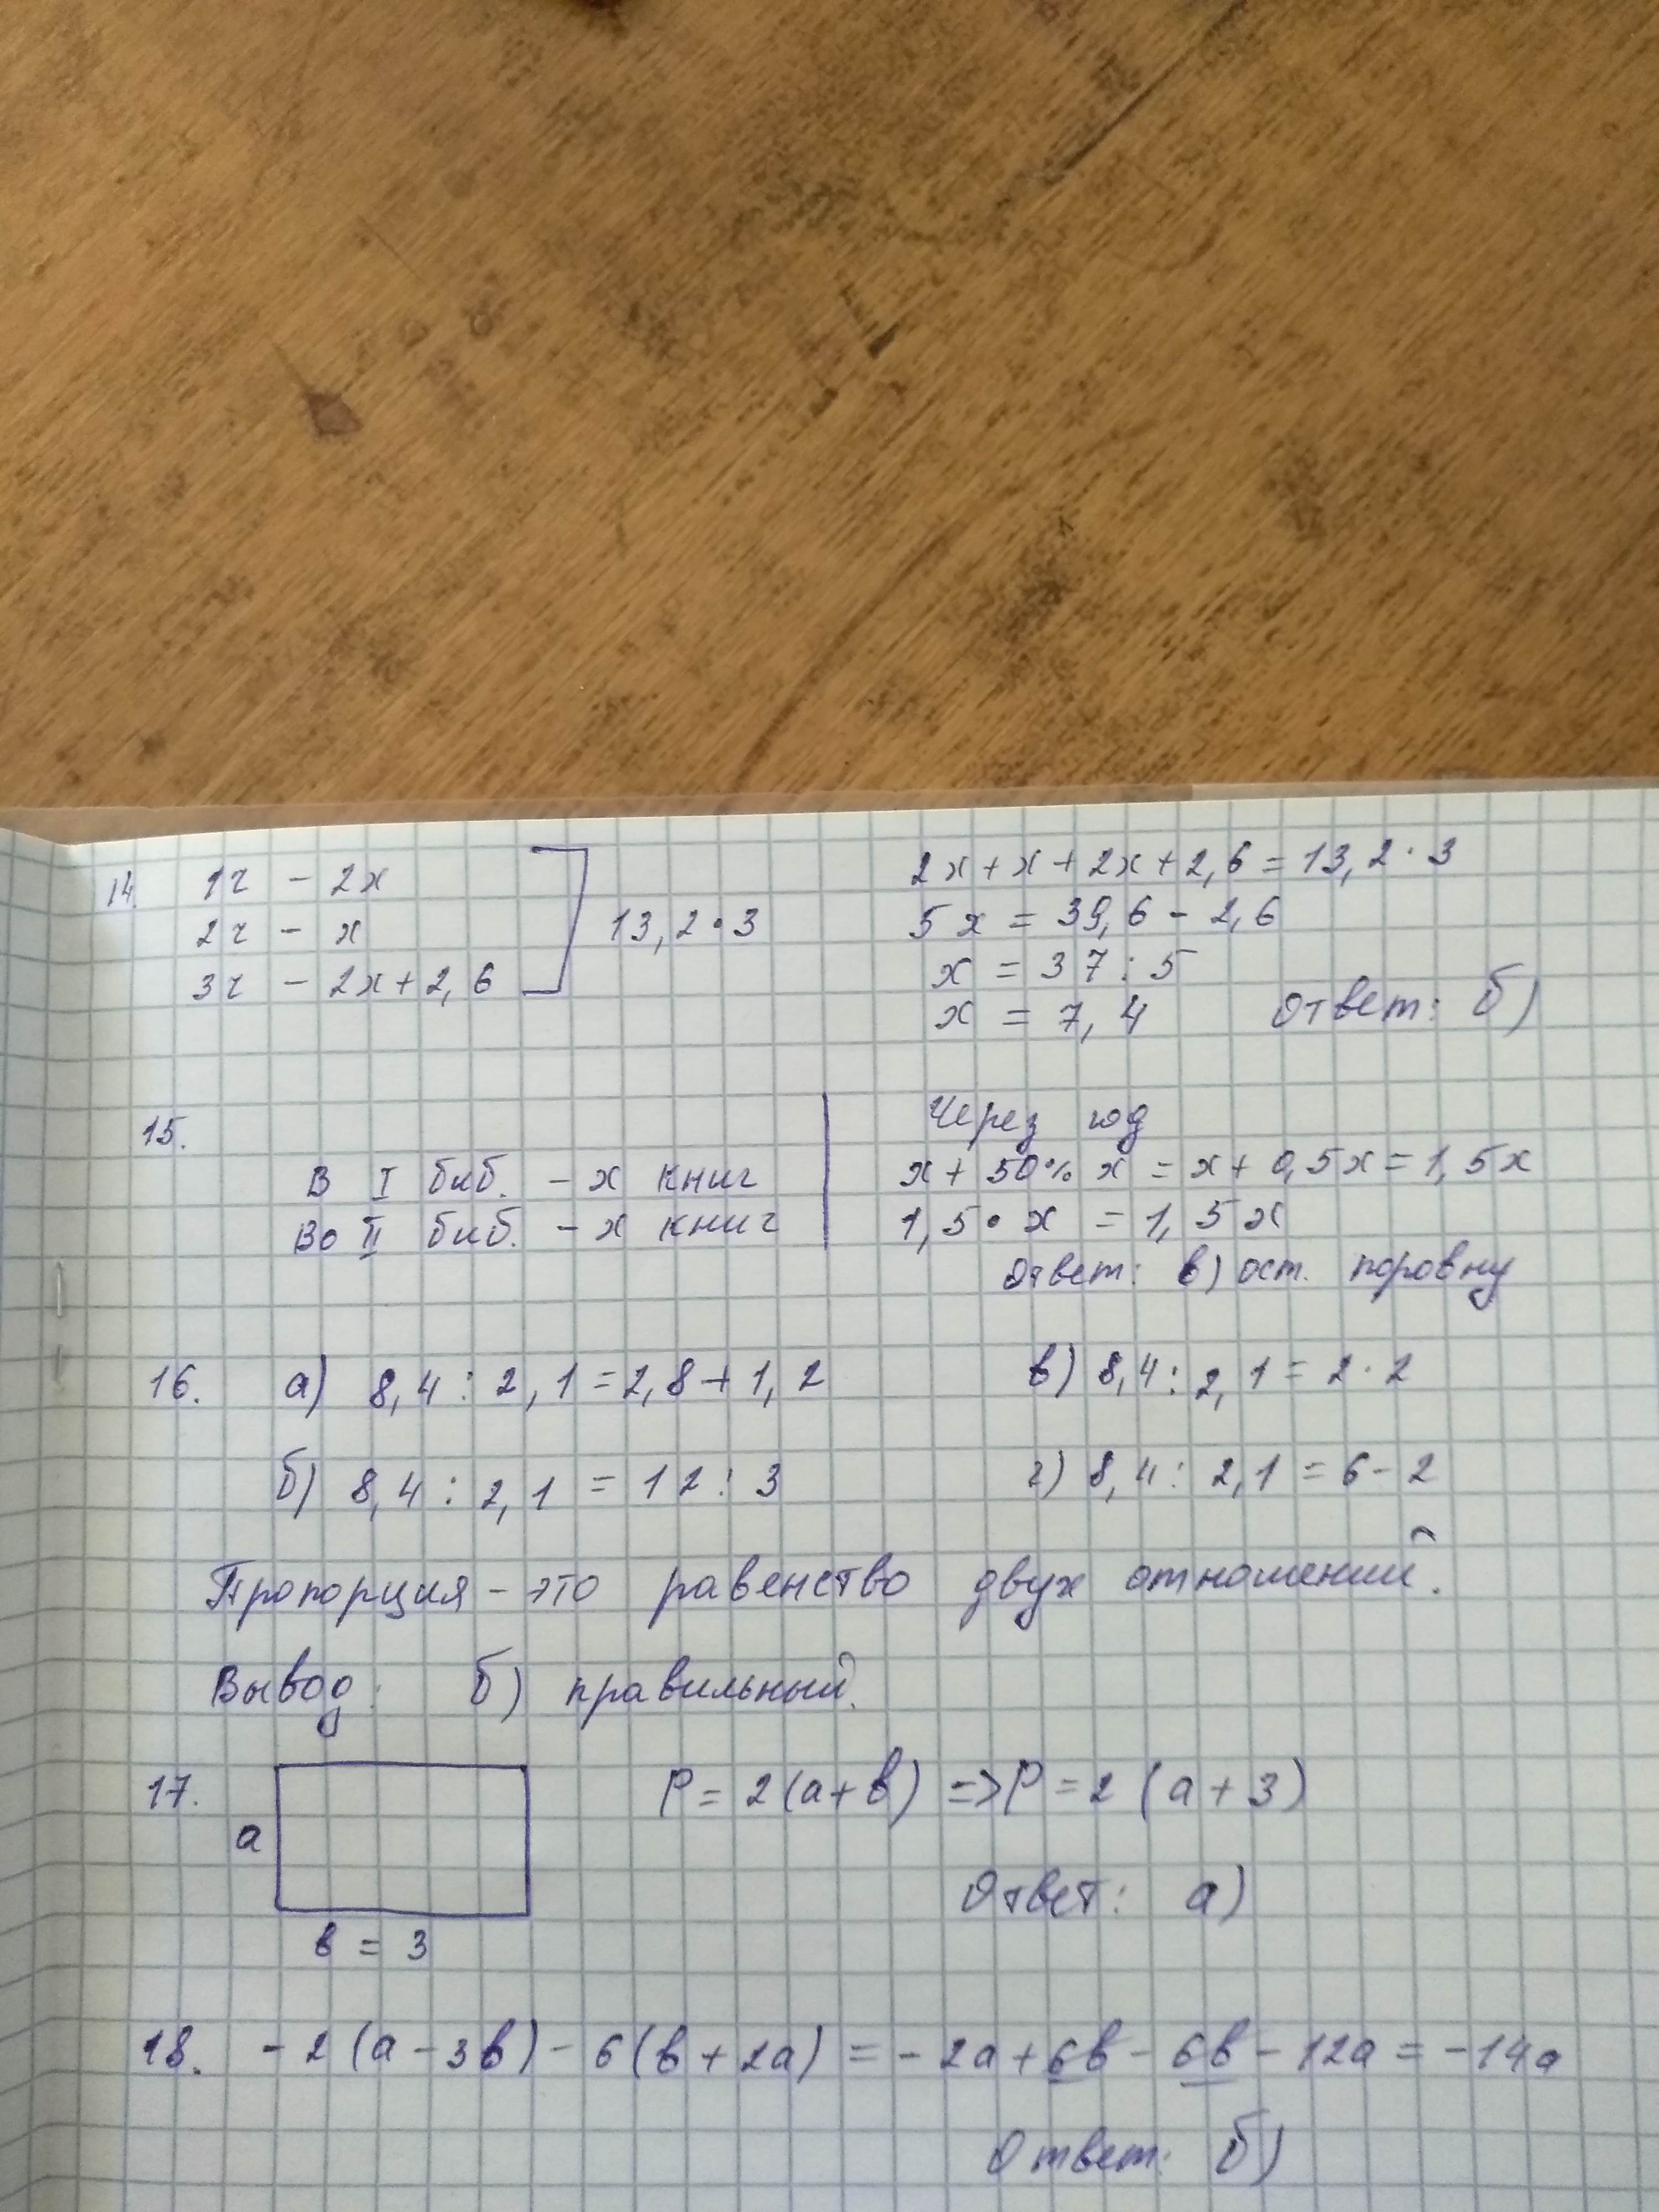 14. 1ч - 2х
2ч - х
3ч - 2х+2,6
13,2·3
2х+х+2х+2,6=13,2·3
5х = 39,6 - 2,6
х = 37:5
х = 7,4 Ответ: б)
15.
В I биб. - х книг
Во II биб. - х книг
Через год
х + 50% х = х + 0,5х = 1,5х
1,5 · х = 1,5х
Ответ: в) ост. поровну
16. а) 8,4 : 2,1 = 2,8 + 1,2
в) 8,4 : 2,1 = 2·2
б) 8,4 : 2,1 = 12 : 3
г) 8,4 : 2,1 = 6 - 2
Пропорция - это равенство двух отношений.
Вывод: б) правильный.
17. P = 2(а+в) => P = 2(а+3)
а
в = 3
Ответ: а)
18. -2(а-3в)-6(в+2а) = -2а+6в-6в-12а = -14а
Ответ: б)